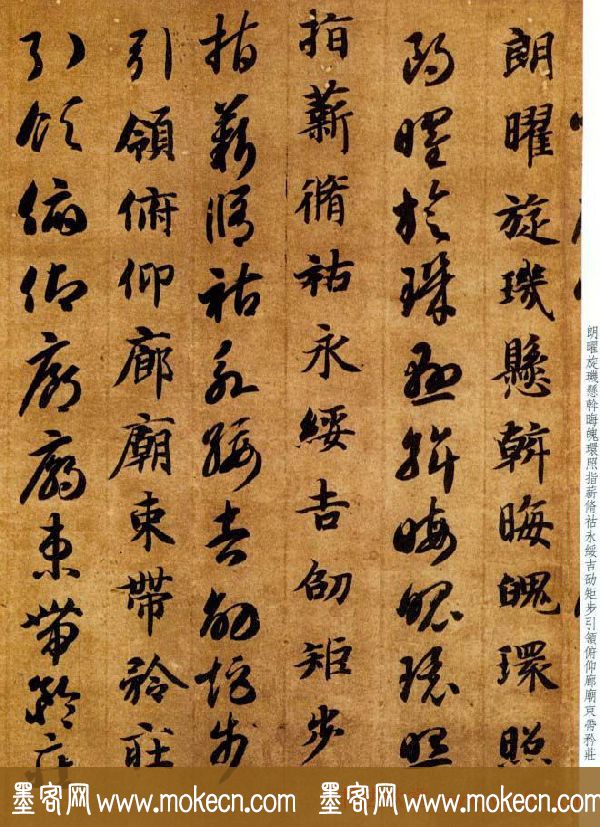 朗曜旋璣懸斡晦魄環照指薪脩祜永綏吉劭矩步引領俯仰廊廟束帶矜莊
朗曜旋璣懸斡晦魄環照
朗曜旋璣懸斡晦魄環照
指薪脩祜永綏吉劭矩步
指薪脩祜永綏吉劭矩步
引領俯仰廊廟束帶矜莊
引領俯仰廊廟束帶矜莊
墨客网 www.mokecn.com 墨客网 www.mokecn.com